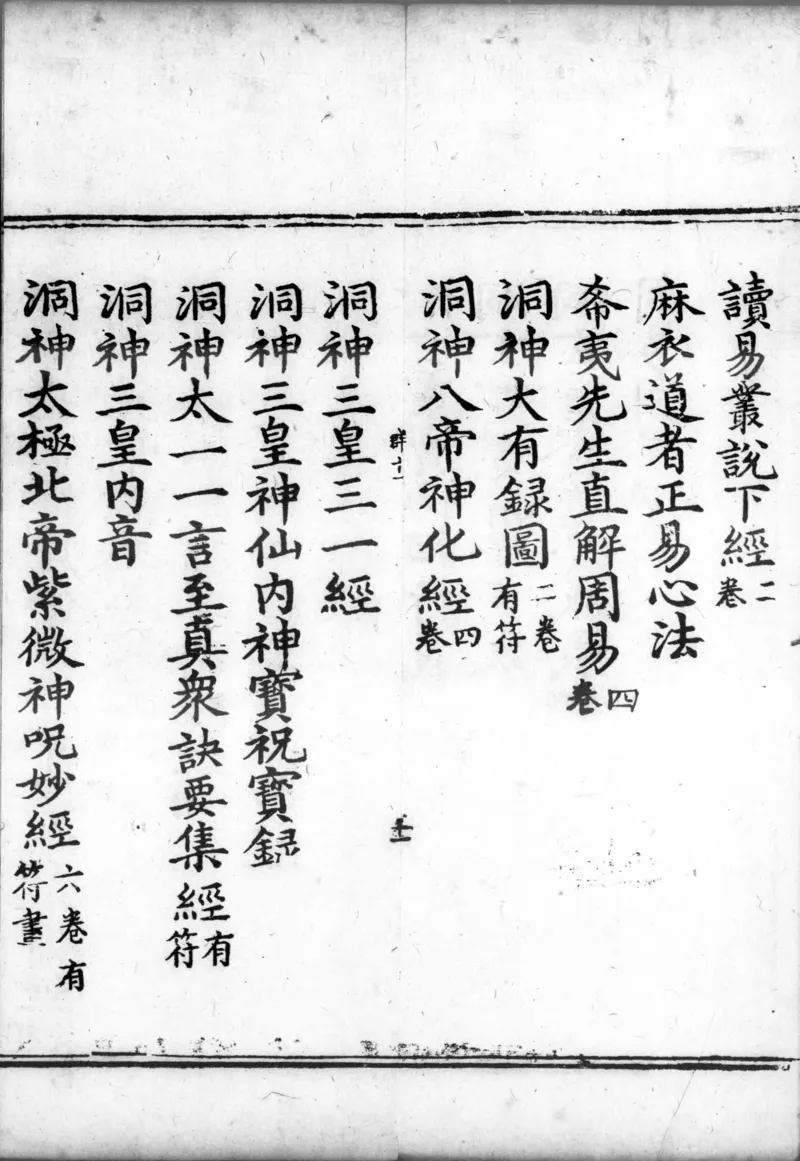 讀易叢說下經二卷
麻衣道者正易心法
希夷先生直解周易四卷
洞神大有録圖二卷有符
洞神八帝神化經四卷
群十一
十一
洞神三皇三一經
洞神三皇神仙内神寶祝寶録
洞神太一一言至真衆訣要集經有符
洞神三皇内音
洞神太極北帝紫微神呪妙經六卷有符畫